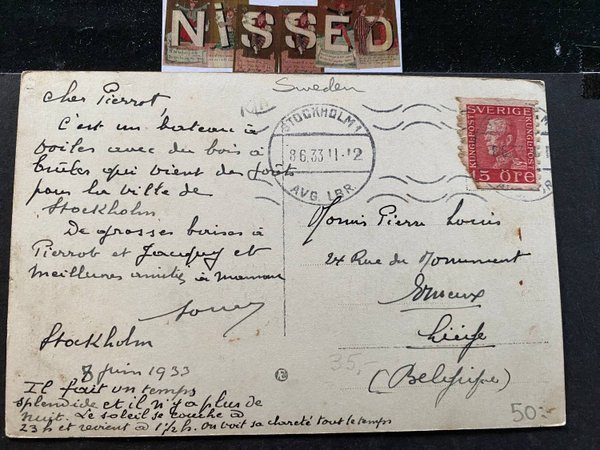 NiSSED
Sweden
Cher Pierrot,
C'est un bateau à
voiles avec du bois à
brûler qui vient des forêts
pour la ville de
Stockholm.
De grosses baises à
Pierrot et Jacquy et
meilleures amitiés à maman
Stockholm
8 juin 1933
Il fait un temps
splendide et il n'y a plus de
nuit. Le soleil se couche à
23 h et revient à 1 1/2 h. On voit sa clarté tout le temps
STOCKHOLM 1
8.6.33 11-12
AVG. LBR.
SVERIGE
15 ÖRE
Mons Pierre Louis
24 Rue du Monument
Liége
(Belgique)
35,
50:-